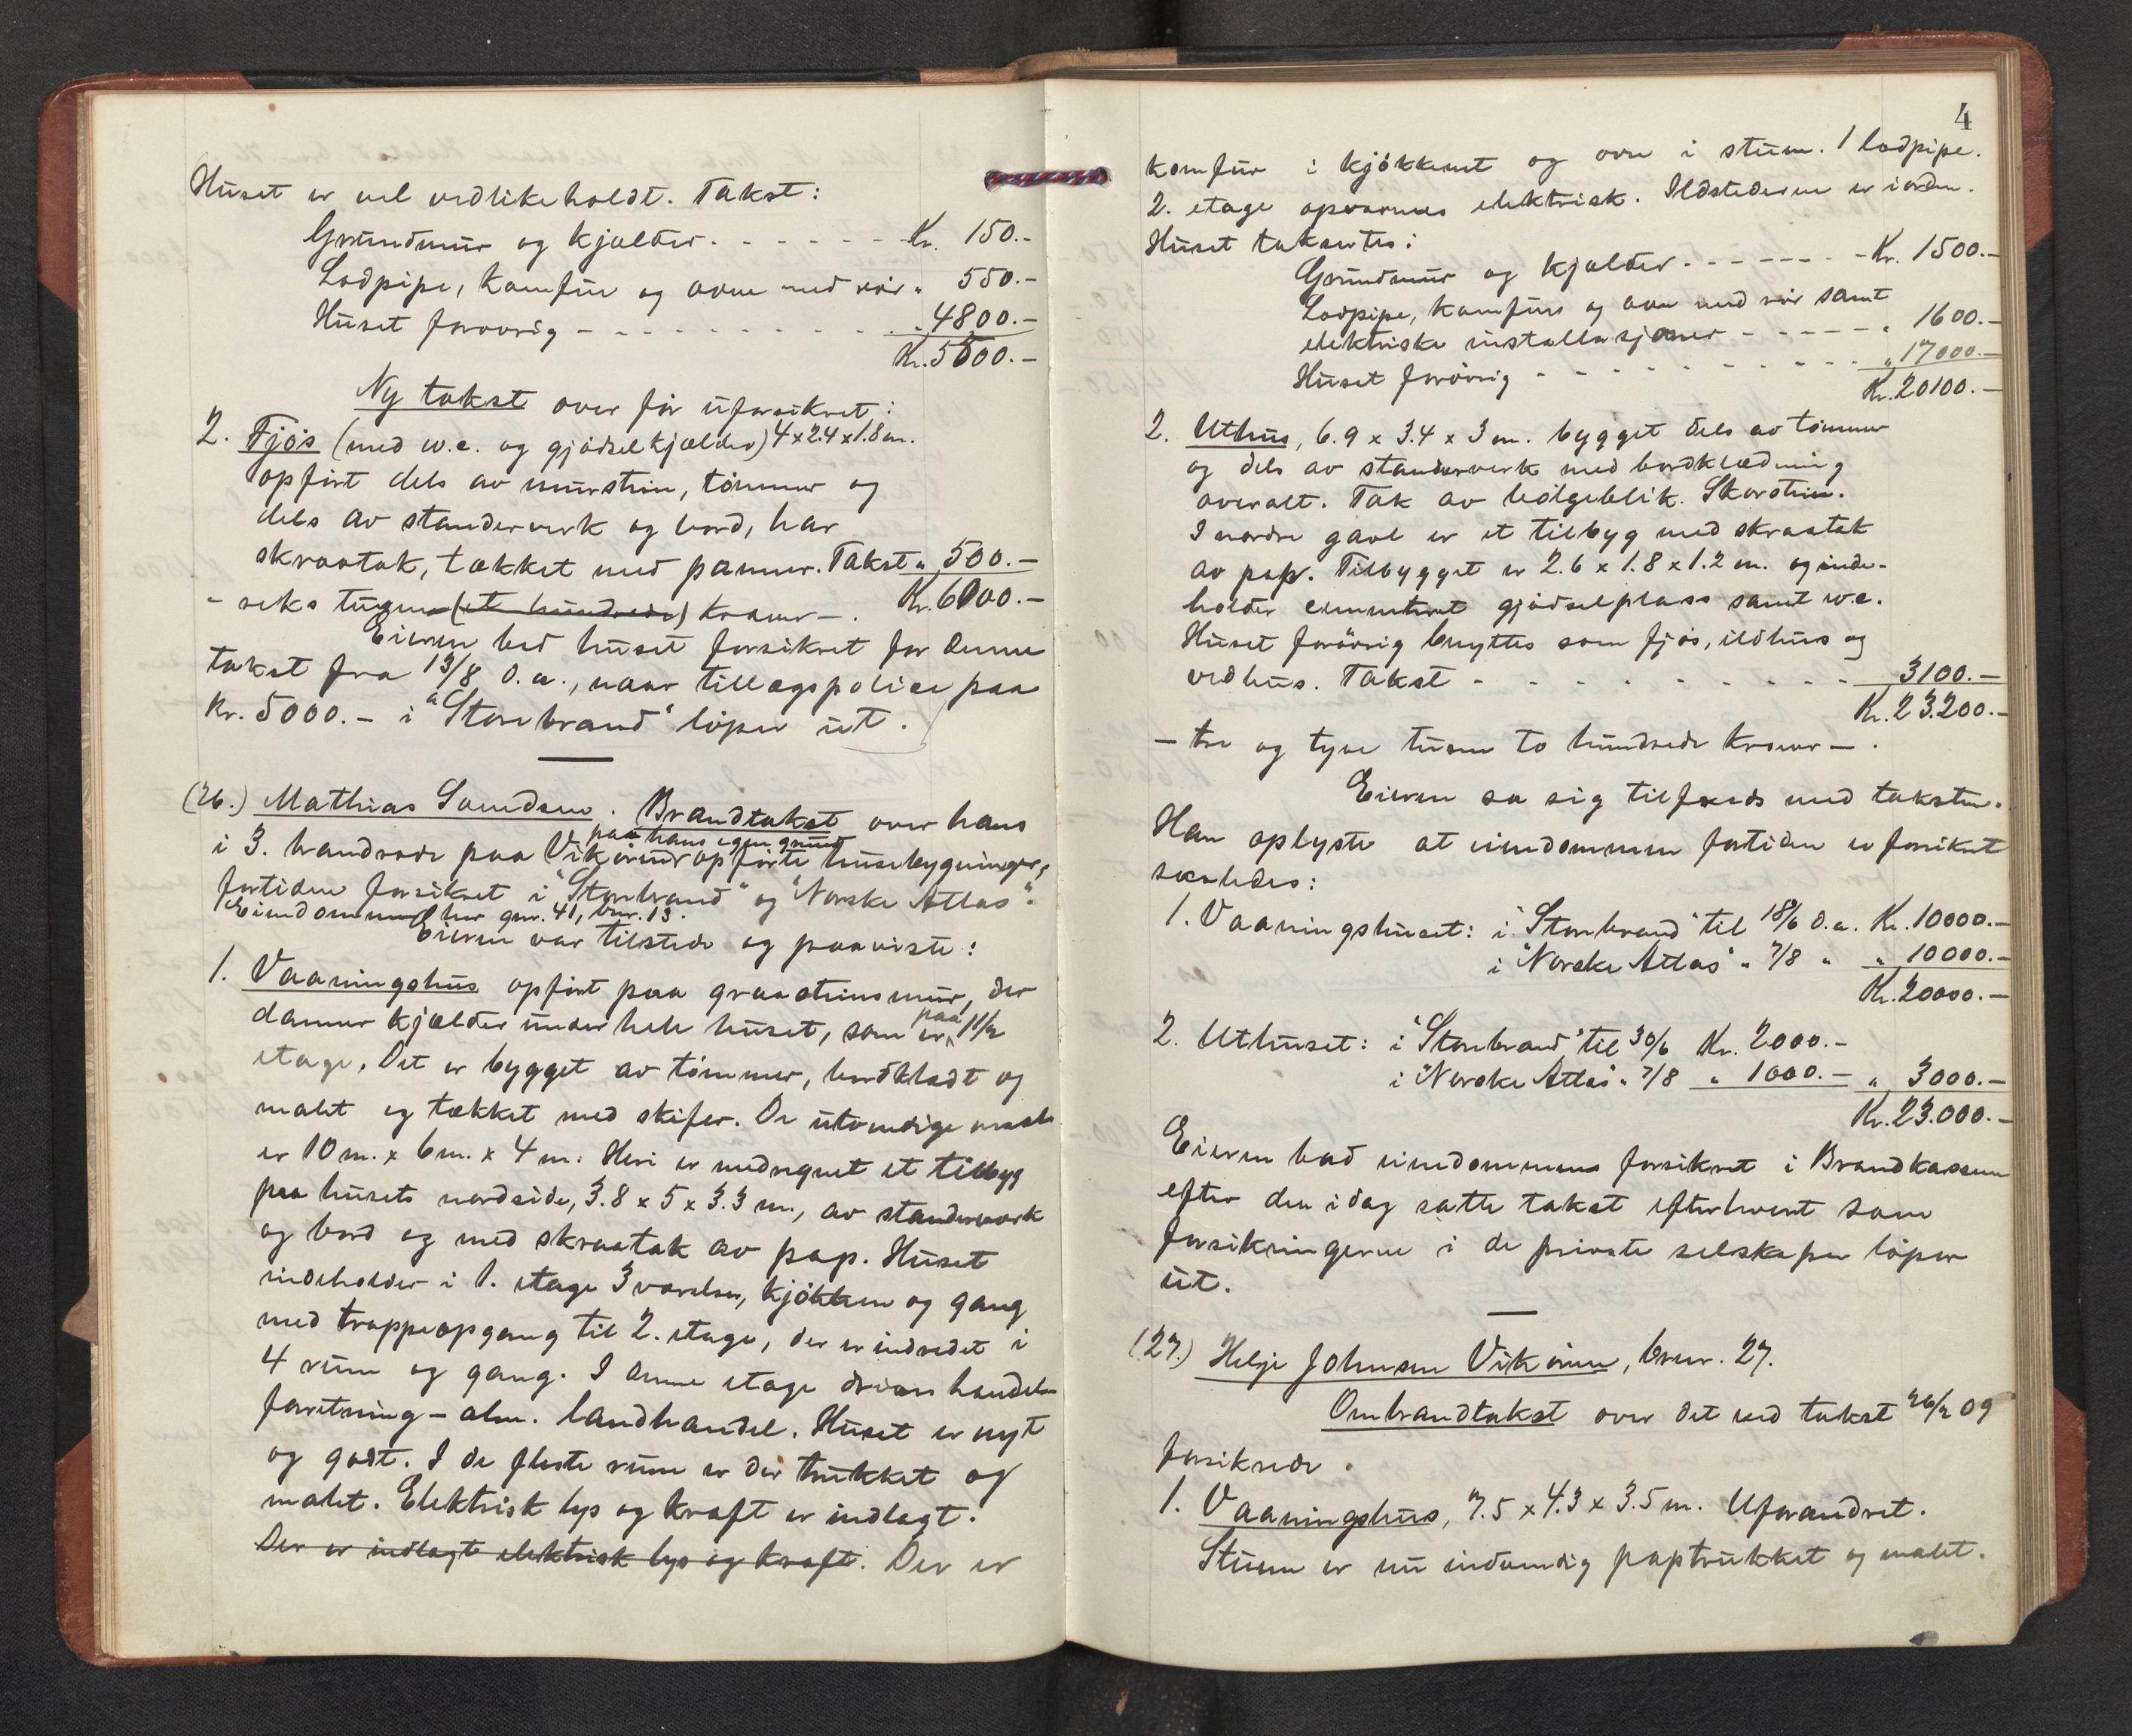 Huset er vel vedlikeholdt. Takst:
Grundmur og kjælder . - - - - - - Kr. 150.-
Lodpipe, komfur og ovne med rör " 550.-
Huset forövrig - - - - - - - - - - " 4800.-
Kr. 5500.-
Ny takst over för uforsikret:
2. Fjös (med w.c. og gjödselkjælder) 4 x 2.4 x 1.8 m.
opfört dels av murstein, tömmer og
dels av standerverk og bord, har
skraatak, tækket med panner. Takst " 500.-
Kr. 6000.-
- seks tusen (et hundrede) kroner -.
Eieren bad huset forsikret for denne
takst fra 13/8 d.a., naar tillægspolice paa
Kr. 5000.- i "Storebrand" löper ut.
(26.) Mathias Samdsen. Brandtakst over hans
paa hans egen grund
i 3. brandrode paa Vikören opförte husebygninger,
fortiden forsikret i "Storebrand" og "Norske Atlas".
Eiendommen har gnr. 41, bnr. 13.
Eieren var tilstede og paaviste:
1. Vaaningshus opfört paa graasteinsmur, der
danner kjælder under hele huset, som er paa 1 1/2
etage. Det er bygget av tömmer, bordklædt og
malt og tækket med skifer. De utvendige maal
er 10 m. x 6 m. x 4 m. Heri er medregnet et tilbyg
paa husets nordside, 3.8 x 5 x 3.3 m., av standerverk
og bord og med skraatak av pap. Huset
indeholder i 1. etage 3 værelser, kjökken og gang
med trappeopgang til 2. etage, der er indredet i
4 rum og gang. I denne etage drives handels-
forretning - alm. landhandel. Huset er nyt
og godt. I de fleste rum er der trukket og
malet. Elektrisk lys og kraft er indlagt.
Der er indlagt elektrisk lys og kraft. Der er
4
komfur i kjökkenet og ovn i stuen. 1 lodpipe.
2. etage opvarmes elektrisk. Ildstederne er i orden.
Huset taksertes:
Grundmur og kjælder - - - - - - - Kr. 1500.-
Lodpipe, komfur og ovn med rör samt
elektriske installasjoner - - - - - " 1600.-
Huset forövrig - - - - - - - - - - " 17000.-
Kr. 20100.-
2. Uthus, 6.9 x 3.4 x 3 m. bygget dels av tömmer
og dels av standerverk med bordklædning
overalt. Tak av bölgeblik. Skorstein.
I nordre gavl er et tilbyg med skraatak
av pap. Tilbygget er 2.6 x 1.8 x 1.2 m. og inde-
holder cementeret gjödselplass samt w.c.
Huset forövrig benyttes som fjös, ildhus og
vedhus. Takst - - - - - - - - - - 3100.-
Kr. 23.200.-
- tre og tyve tusen to hundrede kroner -.
Eieren sa sig tilfreds med taksten.
Han oplyste at eiendommen fortiden er forsikret
saaledes:
1. Vaaningshuset: i "Storebrand" til 18/6 d.a. Kr. 10000.-
i "Norske Atlas" " 7/8 " " 10000.-
Kr. 20000.-
2. Uthuset: i "Storebrand" til 30/6 Kr. 2000.-
i "Norske Atlas" " 7/8 " 1000.- " 3000.-
Kr. 23.000.-
Eieren bad eiendommen forsikret i Brandkassen
efter den idag satte takst efterhvert som
forsikringerne i de private selskaper löper
ut.
(27.) Helje Johnsen Vikören, bnr. 27.
Ombrandtakst over det ved takst 26/2 09
forsikrede
1. Vaaningshus, 7.5 x 4.3 x 3.5 m. Uforandret.
Stuen er nu indvendig paptrukket og malet.